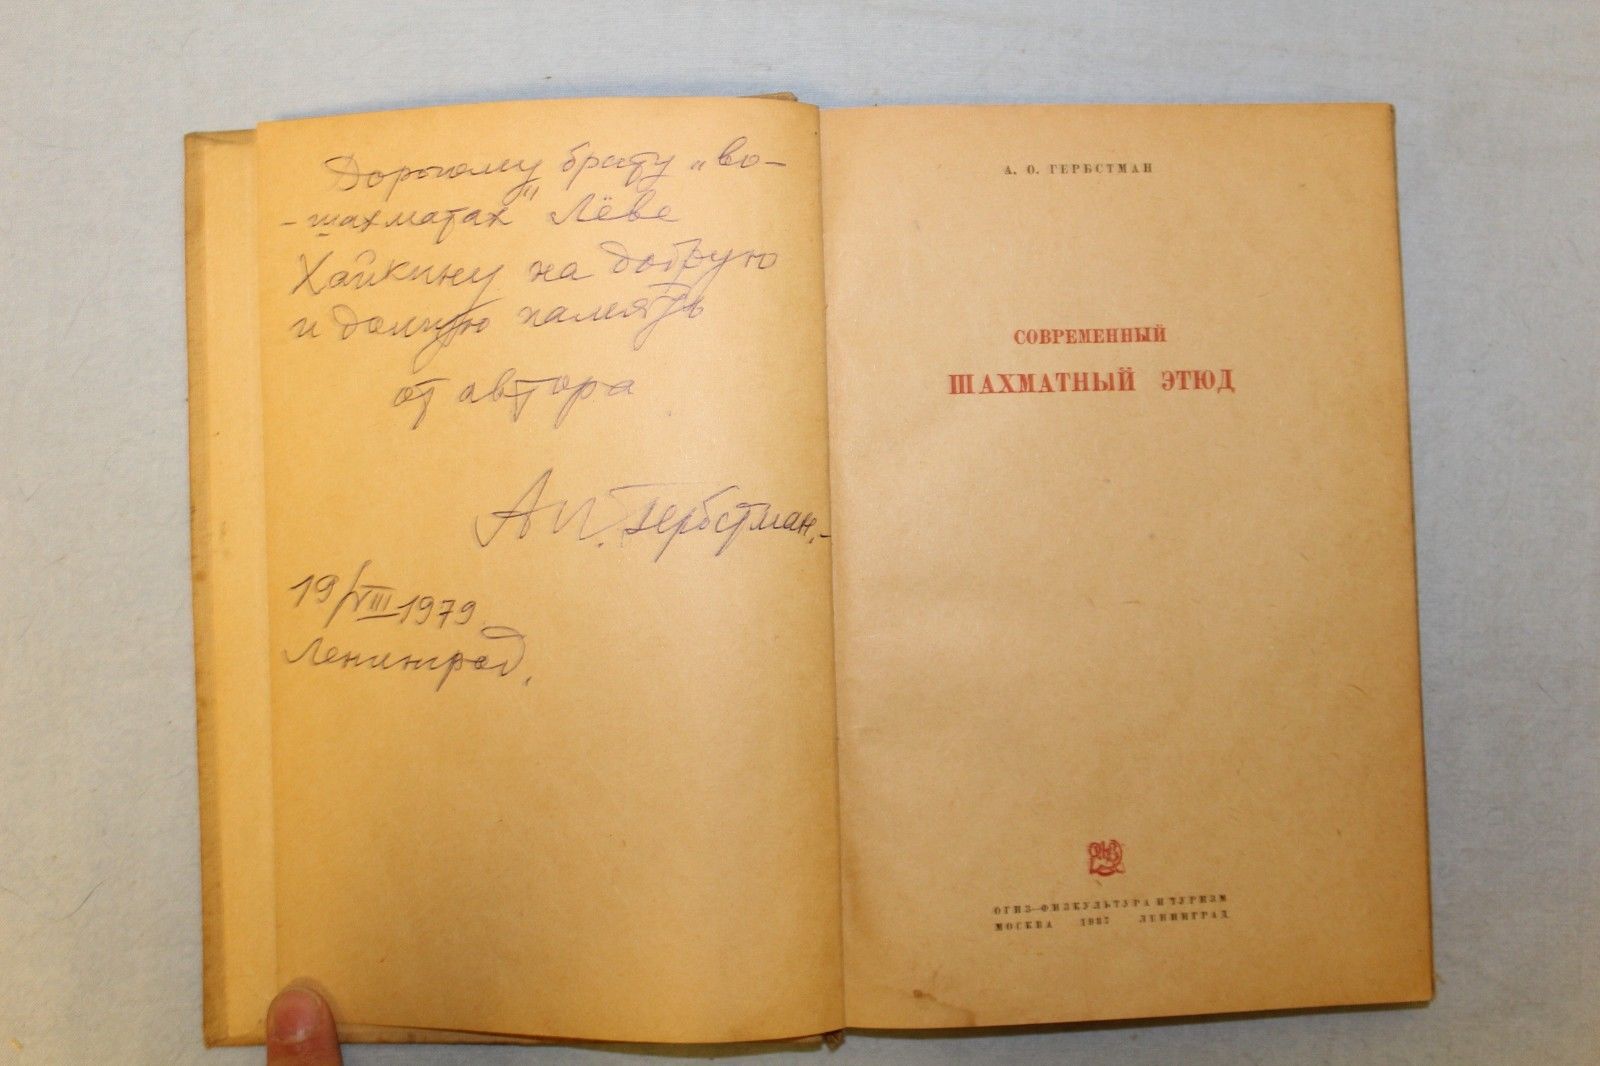 Дорогому брату „во-
-шахматах" Лёве
Хайкину на добрую
и долгую память
от автора
Гербстман.-
19/VIII 1979.
Ленинград.
А. О. ГЕРБСТМАН
СОВРЕМЕННЫЙ
ШАХМАТНЫЙ ЭТЮД
ОГИЗ—ФИЗКУЛЬТУРА И ТУРИЗМ
МОСКВА 1937 ЛЕНИНГРАД